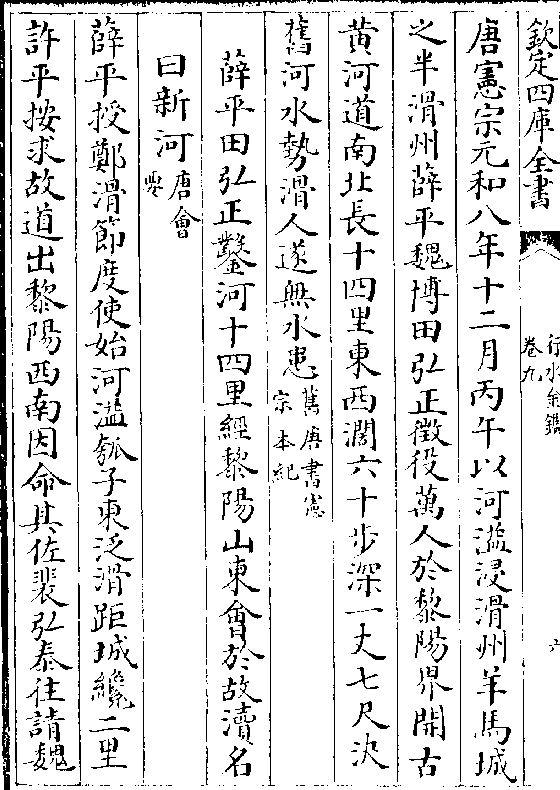 欽定四庫全書
行水金鑑
卷九
六
唐憲宗元和八年十二月丙午以河溢浸滑州羊馬城
之半滑州薛平魏博田弘正徵役萬人於黎陽界開古
黄河道南北長十四里東西濶六十步深一丈七尺決
舊河水勢滑人遂無水患舊唐書憲
宗本紀
薛平田弘正鑿河十四里經黎陽山東會於故瀆名
曰新河唐會
要
薛平授鄭滑節度使始河溢瓠子東泛滑距城纔二里
許平按求故道出黎陽西南因命其佐裴弘泰往請魏